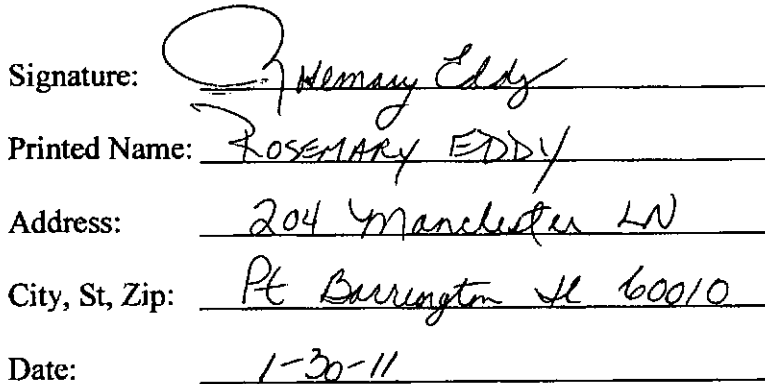 Signature: Rosemary Eddy
Printed Name: ROSEMARY EDDY
Address: 204 Manchester LN
City, St, Zip: Pt Barrington Il 60010
Date: 1-30-11